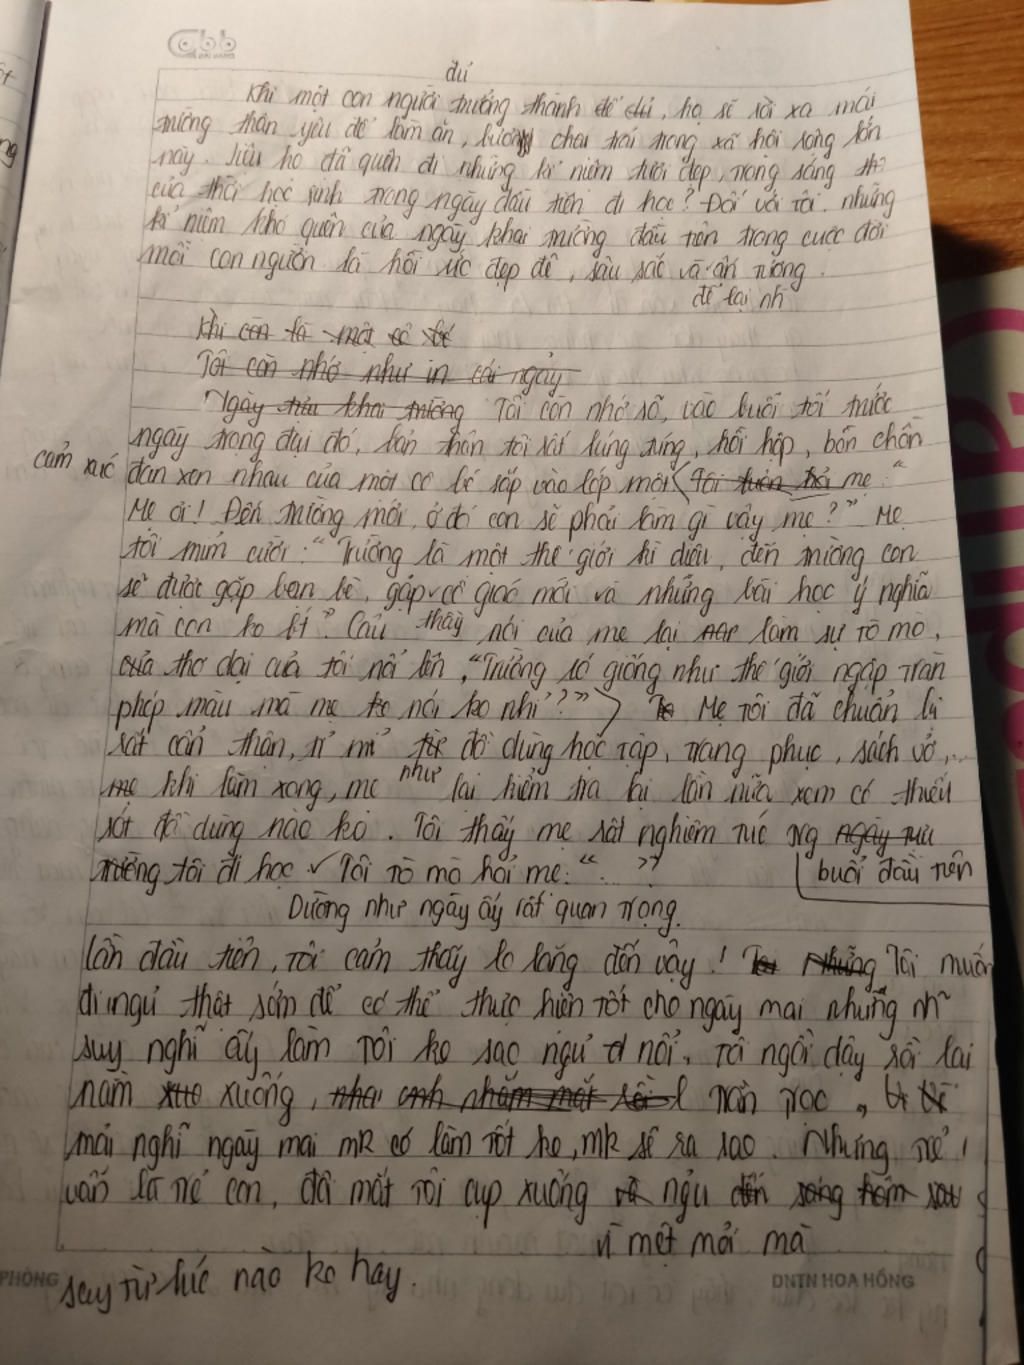 đủ
Khi một con người trưởng thành, họ sẽ rời xa mái
trường thân yêu để làm ăn, bươn chải trong xã hội rộng lớn
này. Liệu họ đã quên đi những kỉ niệm tươi đẹp, trong sáng
của thời học sinh trong ngày đầu tiên đi học? Đối với tôi. những
kỉ niệm khó quên của ngày khai trường đầu tiên trong cuộc đời
mỗi con người là hồi ức đẹp đẽ, sâu sắc và ấn tượng.
để lại nh
Khi còn là một cô bé
Tôi còn nhớ như in cái ngày
Ngày khai trường Tôi còn nhớ rõ, vào buổi tối trước
ngày trọng đại đó, bản thân tôi rất lúng túng, hồi hộp, bồn chồn
cảm xúc đan xen nhau của một cô bé sắp vào lớp một (Tôi hỏi mẹ: "
Mẹ ơi! Đến trường mới, ở đó con sẽ phải làm gì vậy mẹ?" Mẹ
tôi mỉm cười: "Trường là một thế giới kì diệu, đến trường con
sẽ được gặp bạn bè, gặp cô giáo mới và những bài học ý nghĩa
thầy
mà con ko bt". Câu nói của mẹ lại làm sự tò mò,
của thơ dại của tôi nổi lên, "Trường có giống như thế giới ngập tràn
phép màu mà mẹ ko nói ko nhỉ?") Mẹ tôi đã chuẩn bị
rất cẩn thận, tỉ mỉ từ đồ dùng học tập, trang phục, sách vở,...
mẹ khi làm xong, mẹ như lại kiểm tra lại lần nữa xem có thiếu
sót đồ dùng nào ko. Tôi thấy mẹ rất nghiêm túc trg ngày
trường tôi đi học ✓ Tôi tò mò hỏi mẹ: "...?" buổi đầu tiên
Dường như ngày ấy rất quan trọng.
lần đầu tiên, tôi cảm thấy lo lắng đến vậy! Nhưng Tôi muốn
đi ngủ thật sớm để có thể thực hiện tốt cho ngày mai nhưng
suy nghĩ ấy làm tôi ko sao ngủ nổi. Tôi ngồi dậy rồi lại
nằm xuống, nhắm mắt rồi trằn trọc,
mải nghĩ ngày mai mk có làm tốt ko, mk sẽ ra sao. Nhưng trẻ
vẫn là trẻ con, đôi mắt tôi cụp xuống và ngủ đến sáng hôm sau
vì mệt mỏi mà
say từ lúc nào ko hay.
PHÒNG
DNTN HOA HỒNG